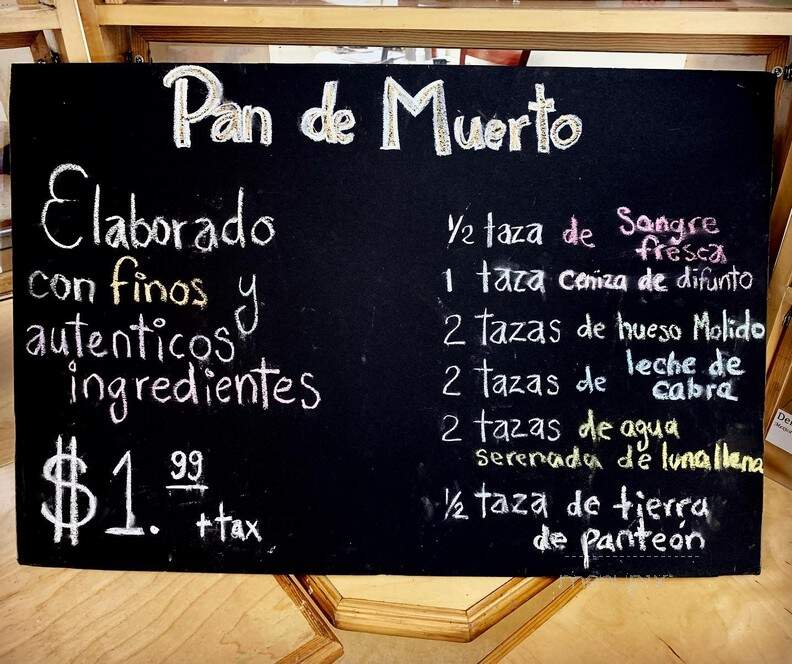 Pan de Muerto
Elaborado
con finos y
autenticos
ingredientes
$1.99
+tax
1/2 taza de Sangre
fresca
1 taza ceniza de difunto
2 tazas de hueso Molido
2 tazas de leche de
cabra
2 tazas de agua
serenada de luna llena
1/2 taza de tierra
de panteón